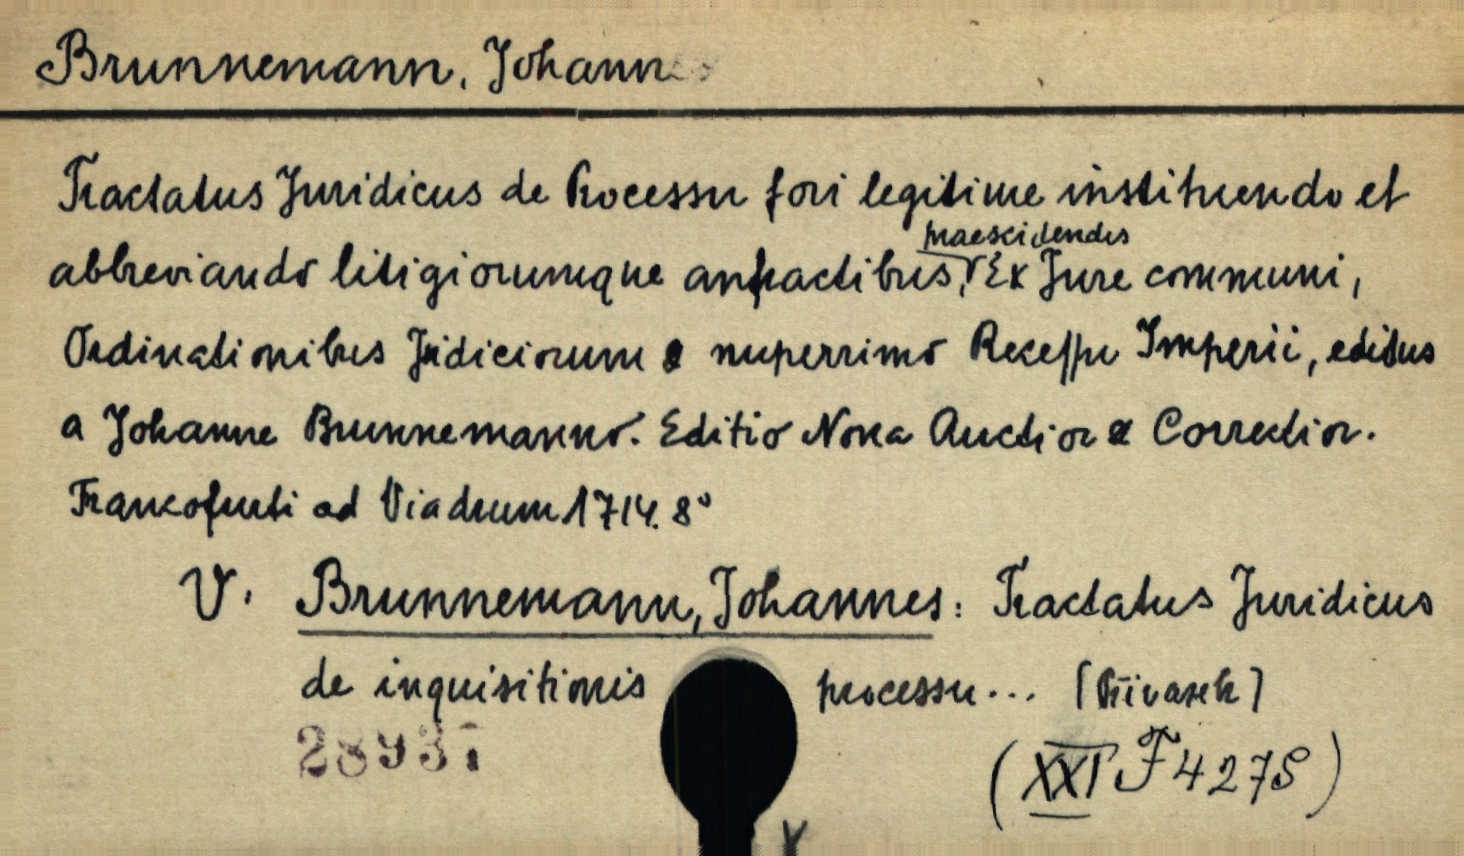 Brunnemann, Johannes
Tractatus Juridicus de Processu fori legitime instituendo et
praescidendis
abbreviando litigiorumque anfractibus, Ex Jure communi,
Ordinationibus Judiciorum & nuperrimo Recessu Imperii, editus
a Johanne Brunnemanno. Editio Nona Auctior & Correctior.
Francofurti ad Viadrum 1714. 8°
V. Brunnemann, Johannes: Tractatus Juridicus
de inquisitionis processu... [Přívazek]
28937
(XXI F 4275)